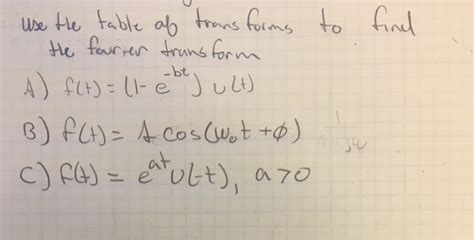 use the table of transforms to find
the fourier transform
A) f(t) = (1- e^-bt) u(t)
B) f(t) = A cos(w₀t +φ)
C) f(t) = e^at u(-t), a>0